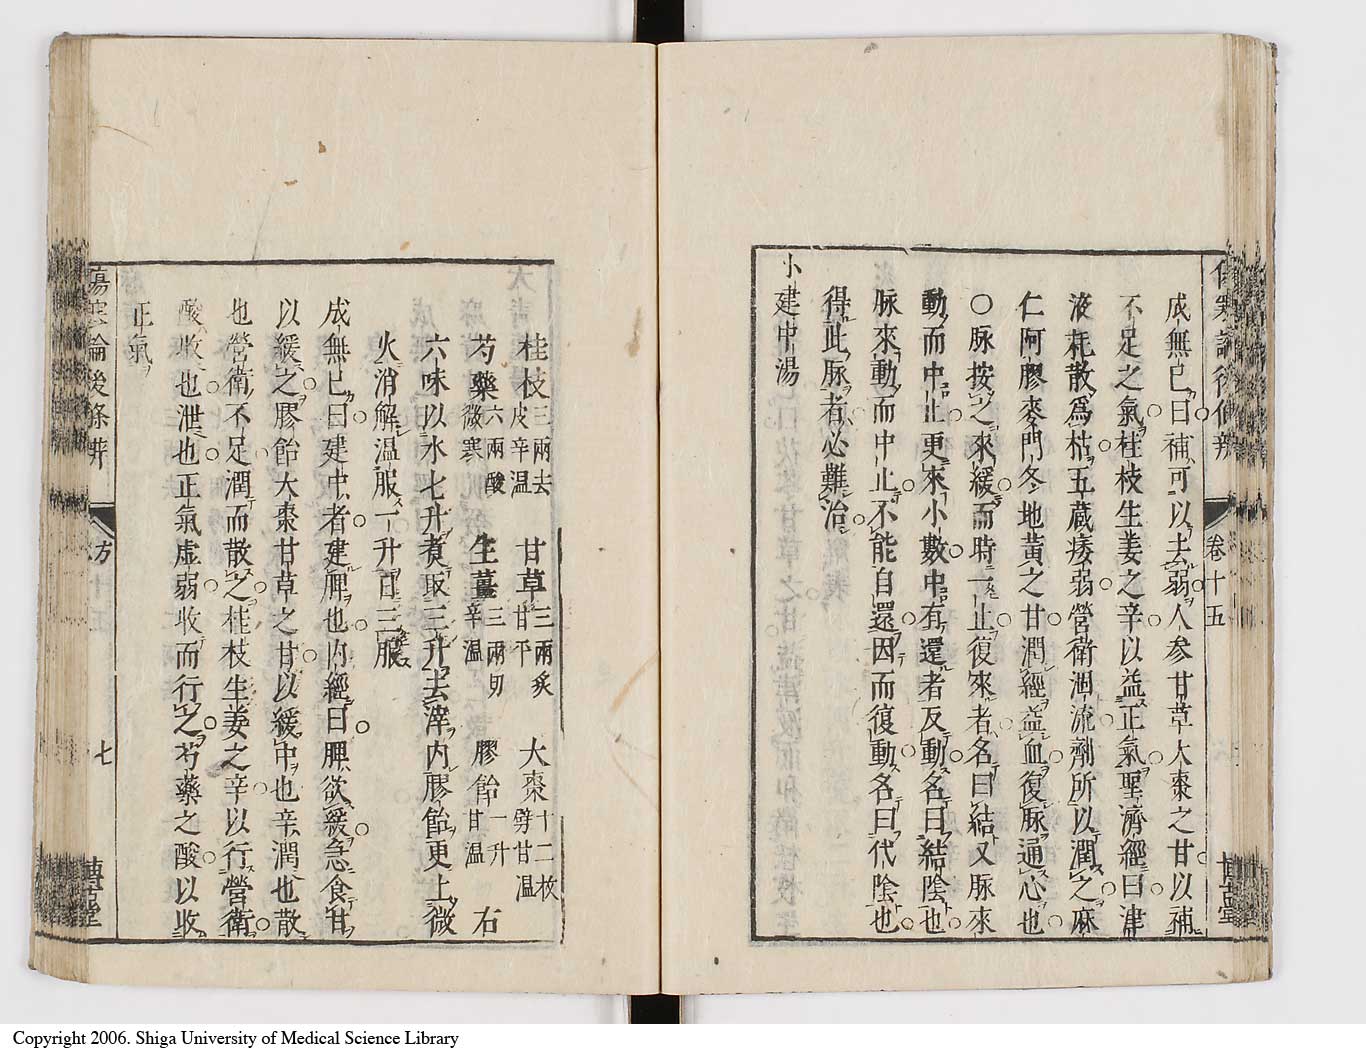 成無已曰補可以去弱人參甘草大棗之甘以補
不足之氣桂枝生姜之辛以益正氣聖濟經曰津
液耗散爲枯五蔵痿弱營衛涸流劑所以潤之麻
仁阿膠麥門冬地黃之甘潤經益血復脉通心也
○脉按之來緩而時一止復來者名曰結又脉來
動而中止更來小數中有還者反動名曰結陰也
脉來動而中止不能自還因而復動名曰代陰也
得此脉者必難治
小建中湯
卷十五
桂枝三兩去皮辛溫 甘草三兩炙甘平 大棗十二枚劈甘溫
芍藥六兩酸微寒 生薑三兩切辛溫 膠飴一升甘溫 右
六味以水七升煮取三升去滓内膠飴更上微
火消解温服一升日三服
成無已曰建中者建脾也内經曰脾欲緩急食甘
以緩之膠飴大棗甘草之甘以緩中也辛潤也散
也營衛不足潤而散之桂枝生姜之辛以行營衛
酸收也泄也正氣虛弱收而行之芍藥之酸以收
正氣
傷寒論後條辨 方 七
Copyright 2006. Shiga University of Medical Science Library